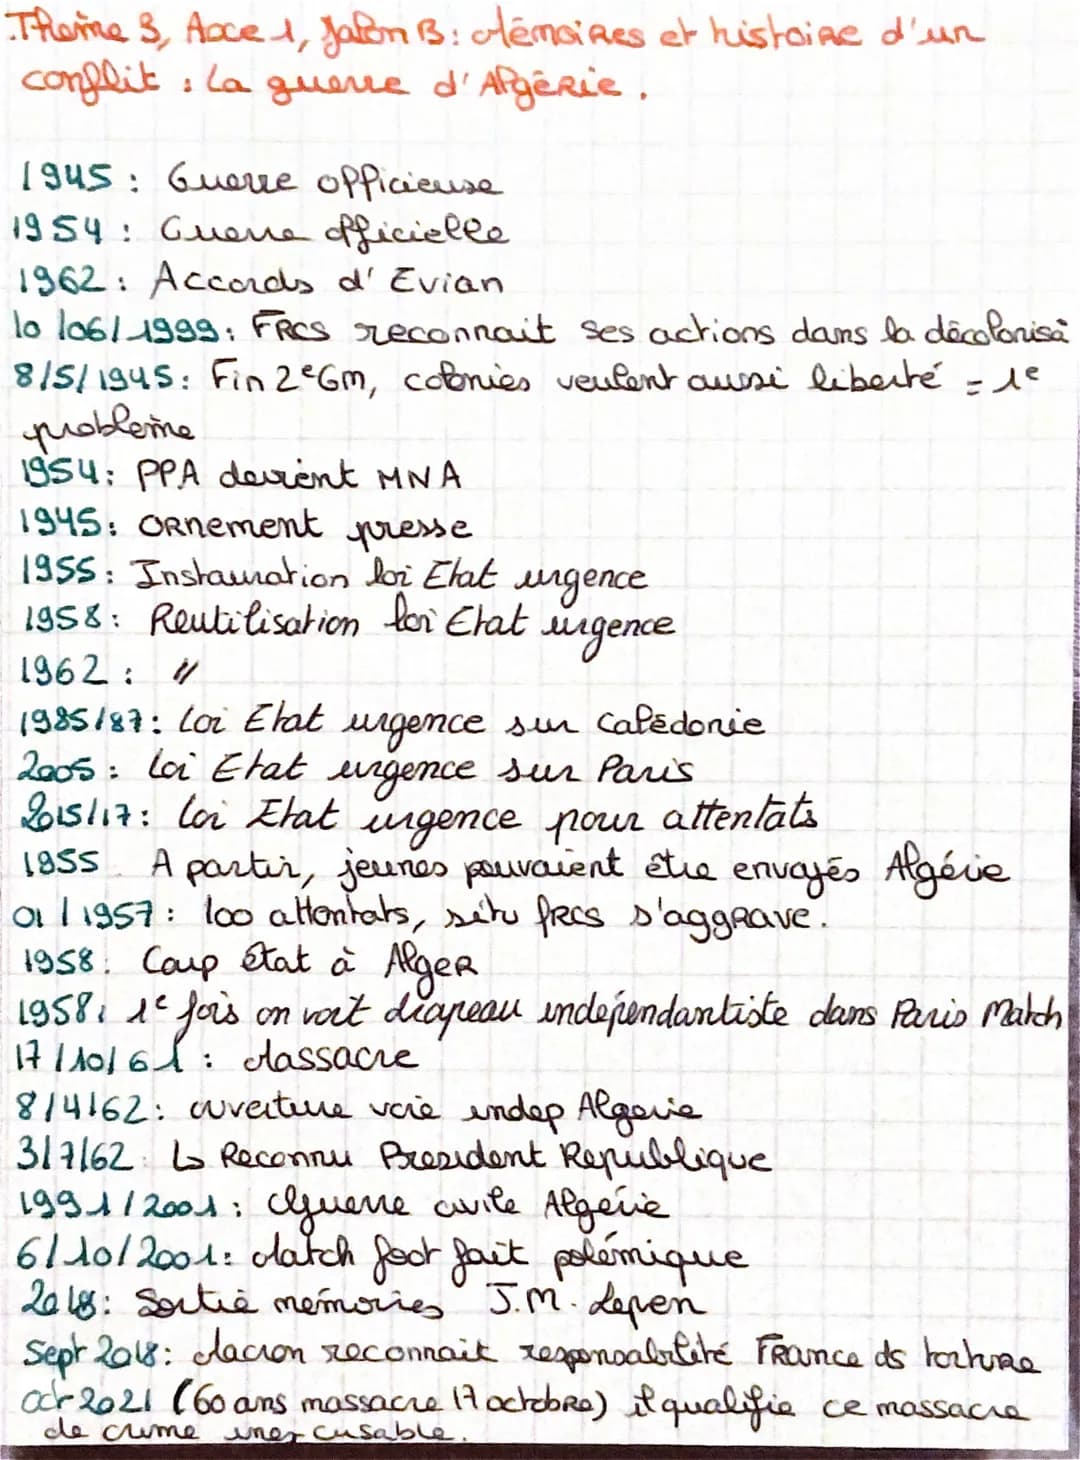 Thème 3, Axe 1, Jalon B : Mémoires et histoire d'un
conflit : la guerre d'Algérie.
1945 : Guerre officieuse
1954 : Guerre officielle
1962 : Accords d'Evian
10/06/1999 : FRCS reconnait ses actions dans la décolonisa°
8/5/1945 : Fin 2e Gm, colonies veulent aussi liberté = 1e
problème
1954 : PPA devient MNA
1945 : ORnement presse
1955 : Instauration loi Etat urgence
1958 : Reutilisation loi Etat urgence
1962 : //
1985/87 : loi Etat urgence sur Calédonie
2005 : loi Etat urgence sur Paris
2015/17 : loi Etat urgence pour attentats
1955 A partir, jeunes pouvaient être envoyés Algérie
01/1957 : 100 attentats, situ frcs s'aggrave.
1958 : Coup état à Alger
1958 : 1e fois on voit drapeau indépendantiste dans Paris Match
17/10/61 : Massacre
8/4/62 : ouverture voie indep Algerie
3/7/62 ↳ Reconnu President Republique
1991/2001 : Guerre civile Algérie
6/10/2001 : Match foot fait polémique
2018 : Sortie mémoires J.M. Lepen
Sept 2018 : Macron reconnait responsabilité France ds torture
oct 2021 (60 ans massacre 17 octobre) il qualifie ce massacre
de crime inexcusable.